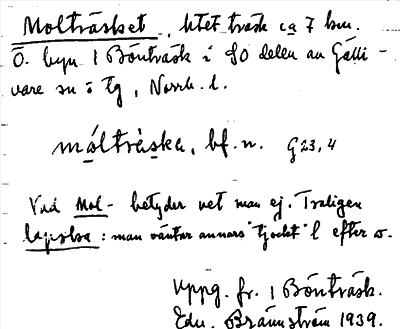 Molträsket, litet träsk ca 7 km.
Ö. byn 1 Böntråsk i SO delen av Gälli-
vare sn o tg, Norrb. l.
måltràska, bf. n. G 23, 4
Vad Mol- betyder vet man ej. Troligen
lapska: man väntar annars "tjockt" l efter o.
Uppg. fr. 1 Böntråsk.
Edv. Brännström 1939.